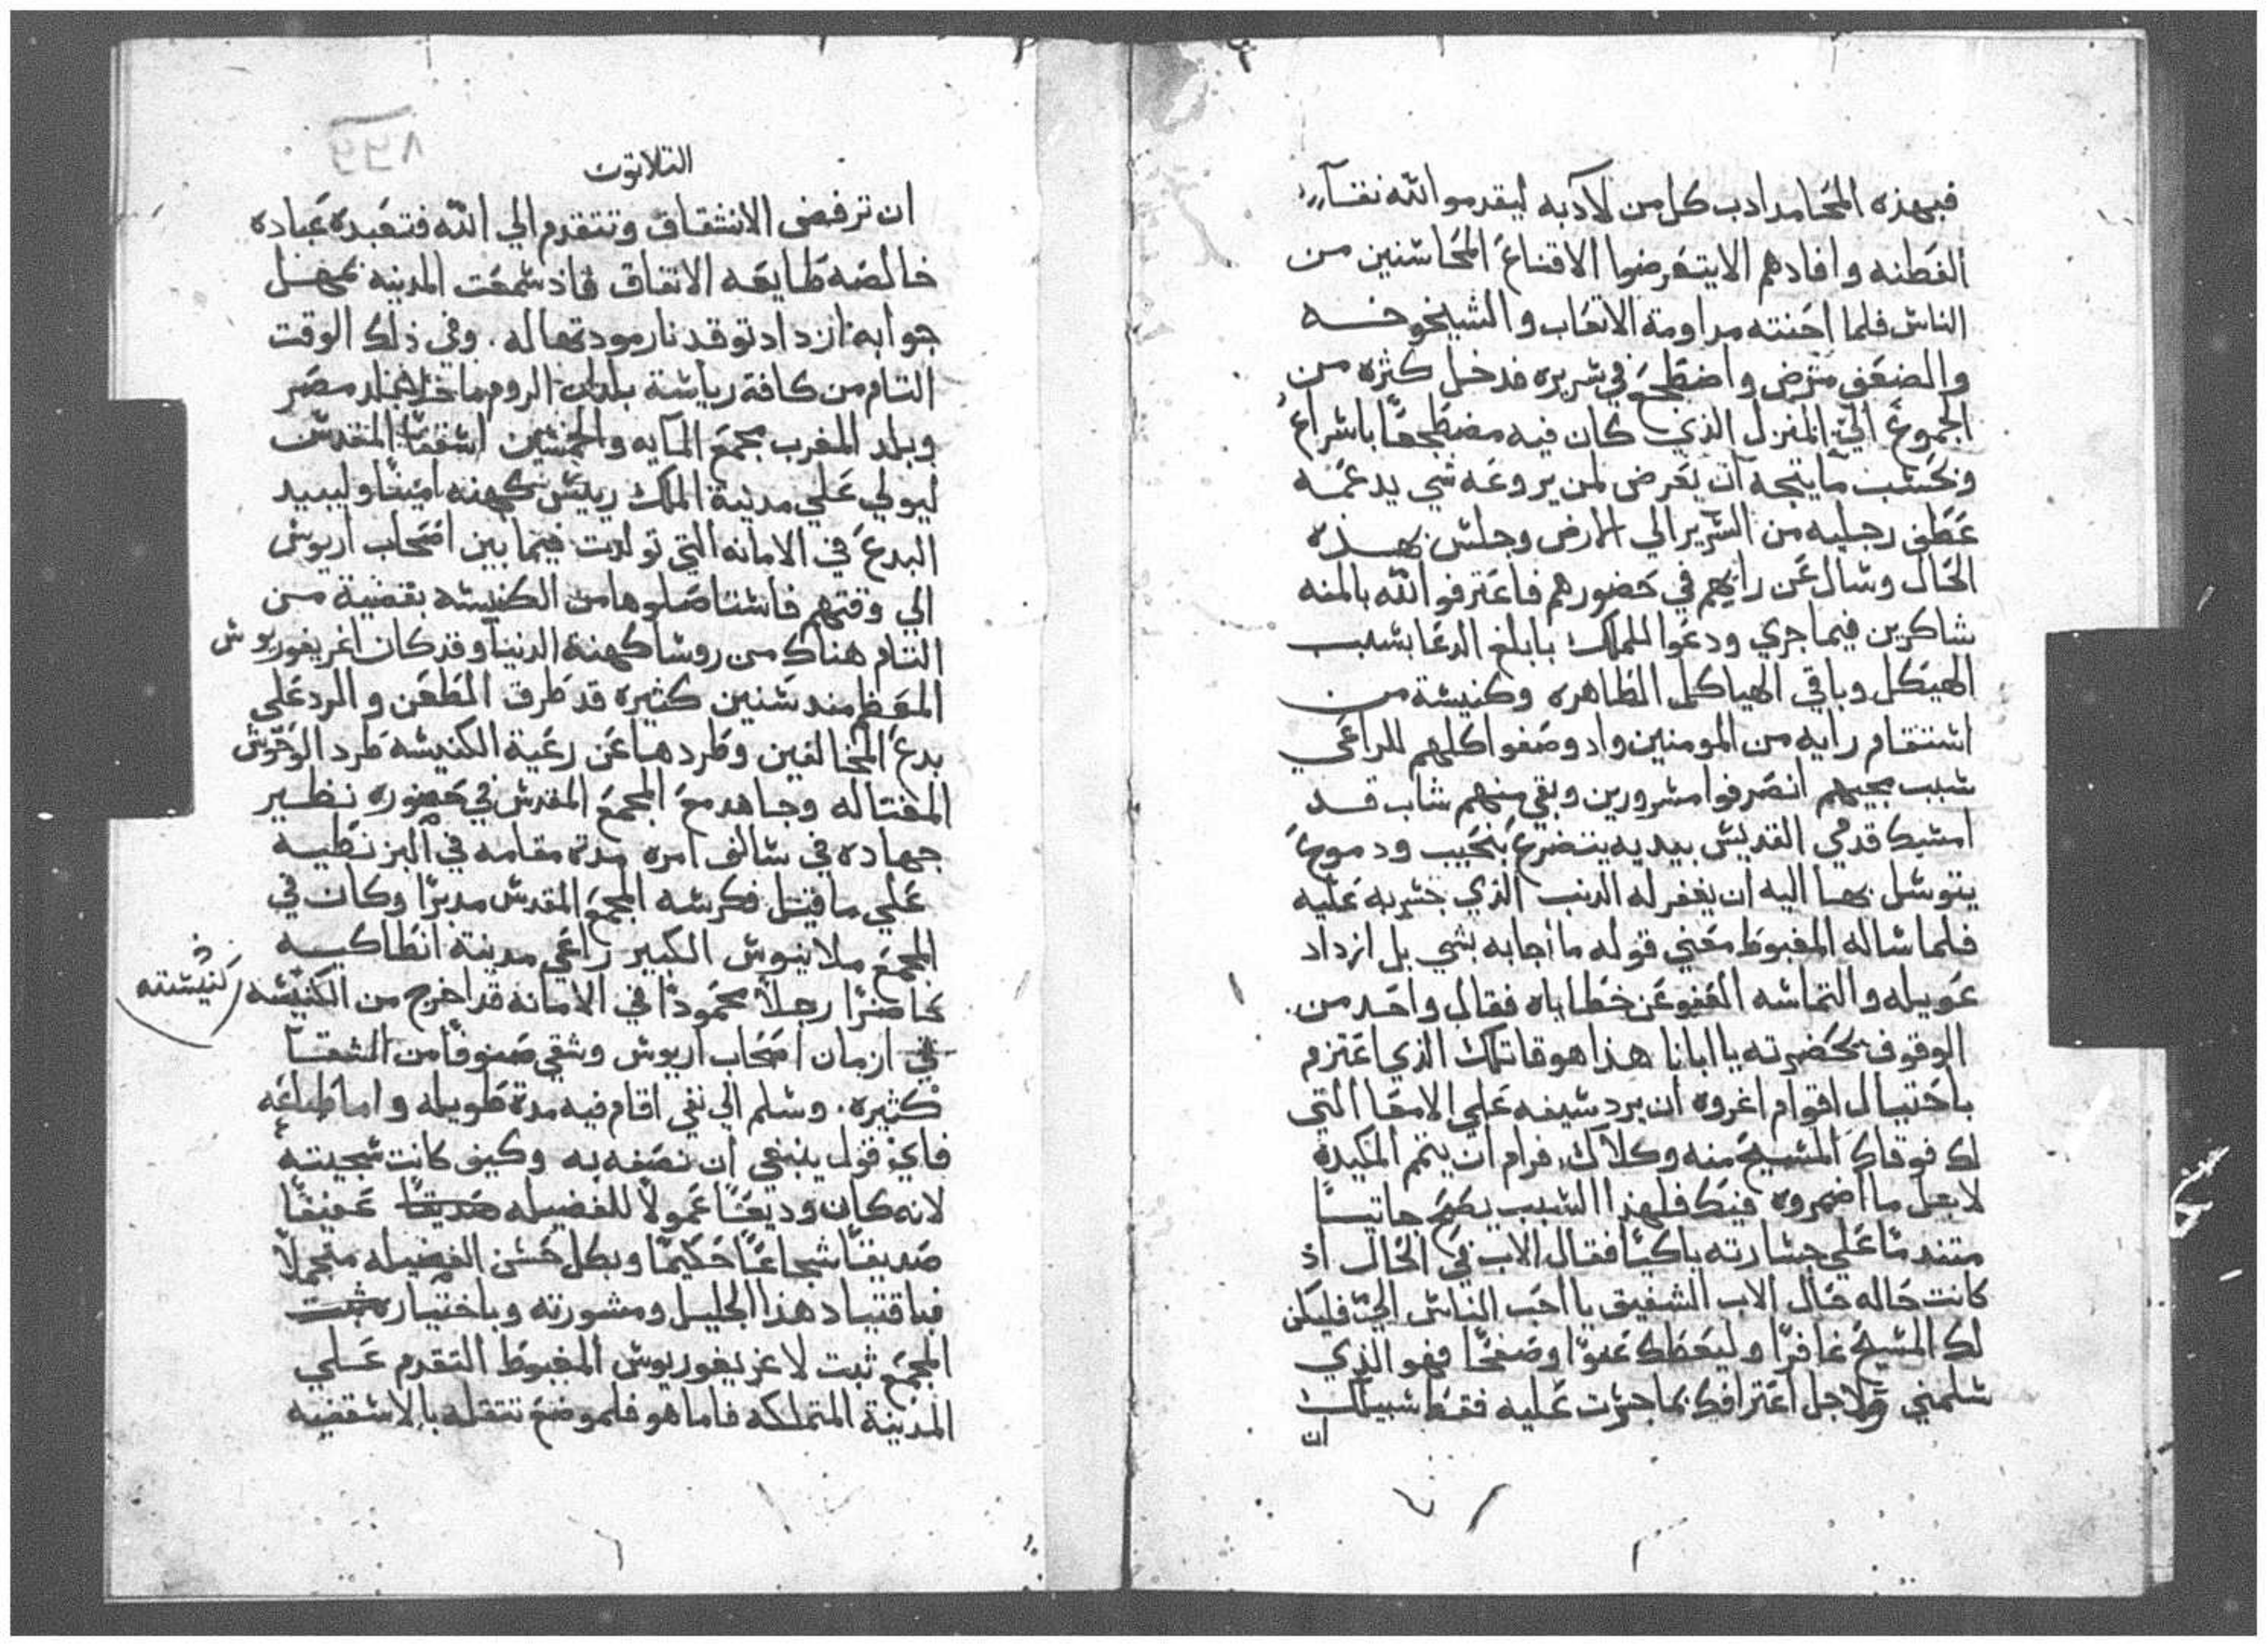 فبهذه المحامد ادب كل من لاذ به ليقدموا لله نقآ
الفطنه وافادهم الا يتعرضوا الاقناع المحاسنين من
الناس فلما احنته مداومة الاتعاب والشيخوخه
والضعف مترض واضطجع في سريره فدخل كثره من
الجموع الي المنزل الذي كان فيه مضطجعًا باسراع
وبحسب ما يتجه ان يعرض لمن يروعه شي يدعمه
عطف رجليه من السرير الي الارض وجلس بهذه
الحال وسال عن رايهم في حضورهم فاعترفوا لله بالمنه
شاكرين فيما جري ودعوا للملك بابلغ الدعا بسبب
الهيكل وباقي الهياكل الظاهره وكنيسة من
استقام رايه من المومنين واد وصفوا كلهم للراعي
سبب مجيهم انصرفوا مسرورين وبقي منهم شاب قد
امسك قدمي القديس بيديه يتضرع بنحيب ودموع
يتوسل بها اليه ان يغفر له الذنب الذي جسر به عليه
فلما ساله المغبوط معني قوله ما اجابه بشي بل ازداد
عويله والتماسه العفو عن خطاياه فقال واحد من
الوقوف بحضرته يا ابانا هذا هو قاتلك الذي اعتزم
باحتيال اقوام اغروه ان يرد سيفه علي الامعا التي
لك فوقاك المسيح منه وكلاك، فرام ان يتمم المكيدة
لاجل ما اضمروه فيك فلهذا السبب يكع جاتيًا
متندمًا علي جسارته باكيًا فقال الاب في الحال اذ
كانت حاله حال الاب الشفيق يا احب الناس الي فليكن
لك المسيح غافرًا وليعطك عفوًا وصفحًا فهو الذي
سلمني ولاجل اعترافك بما جسرت عليه فقط سبيلك
ان
التلاتون
ان ترفض الانشقاق وتتقدم الي الله فتعبده عباده
خالصه طايعه الاتفاق فاذ سمعت المدينه بمهل
جوابه ازداد توقد نار مودتها له. وفي ذلك الوقت
التام من كافة رياسة بلدان الروم ما خلا بلد مصر
وبلد المغرب مجمع المايه والخمسين اسقفًا المقدس
ليولي علي مدينة الملك رييس كهنه امينًا وليبيد
البدع في الامانه التي تولدت فيما بين اصحاب اريوس
الي وقتهم فاستاصلوها من الكنيسه بقضية من
التام هناك من روسا كهنة الدنيا وقد كان اغريغوريوس
المعظم مند سنين كثيره قد طرق الطعن والرد علي
بدع المخالفين وطردها عن رعية الكنيسه طرد الوحوش
المغتاله وجاهد مع المجمع المقدس في حضوره نظير
جهاده في سالف امره مدة مقامه في البزنطيه
علي ما قيل فكرسه المجمع المقدس مدبرًا وكان في
المجمع ملاتيوس الكبير راعي مدينة انطاكيه
حاضرًا رجلاً محمودًا في الامانه قد اخرج من الكنيسه
كنيسته
في ازمان اصحاب اريوس وشقي صنوفًا من الشقا
كثيره. وسلم الي نفي اقام فيه مدة طويله واما طباعه
فاي قول ينبغي ان نصفه به وكيف كانت سجيته
لانه كان وديعًا عمولاً للفضيله صديقًا عفيفًا
صديقًا شجاعًا حكيمًا وبكل حسن الفضيله متجملاً
فباقتياد هذا الجليل ومشورته وباختياره ثبت
المجمع ثبت لاغريغوريوس المغبوط التقدم علي
المدينة المتملكه فاما هو فلموضع تنقله بالاسقفيه